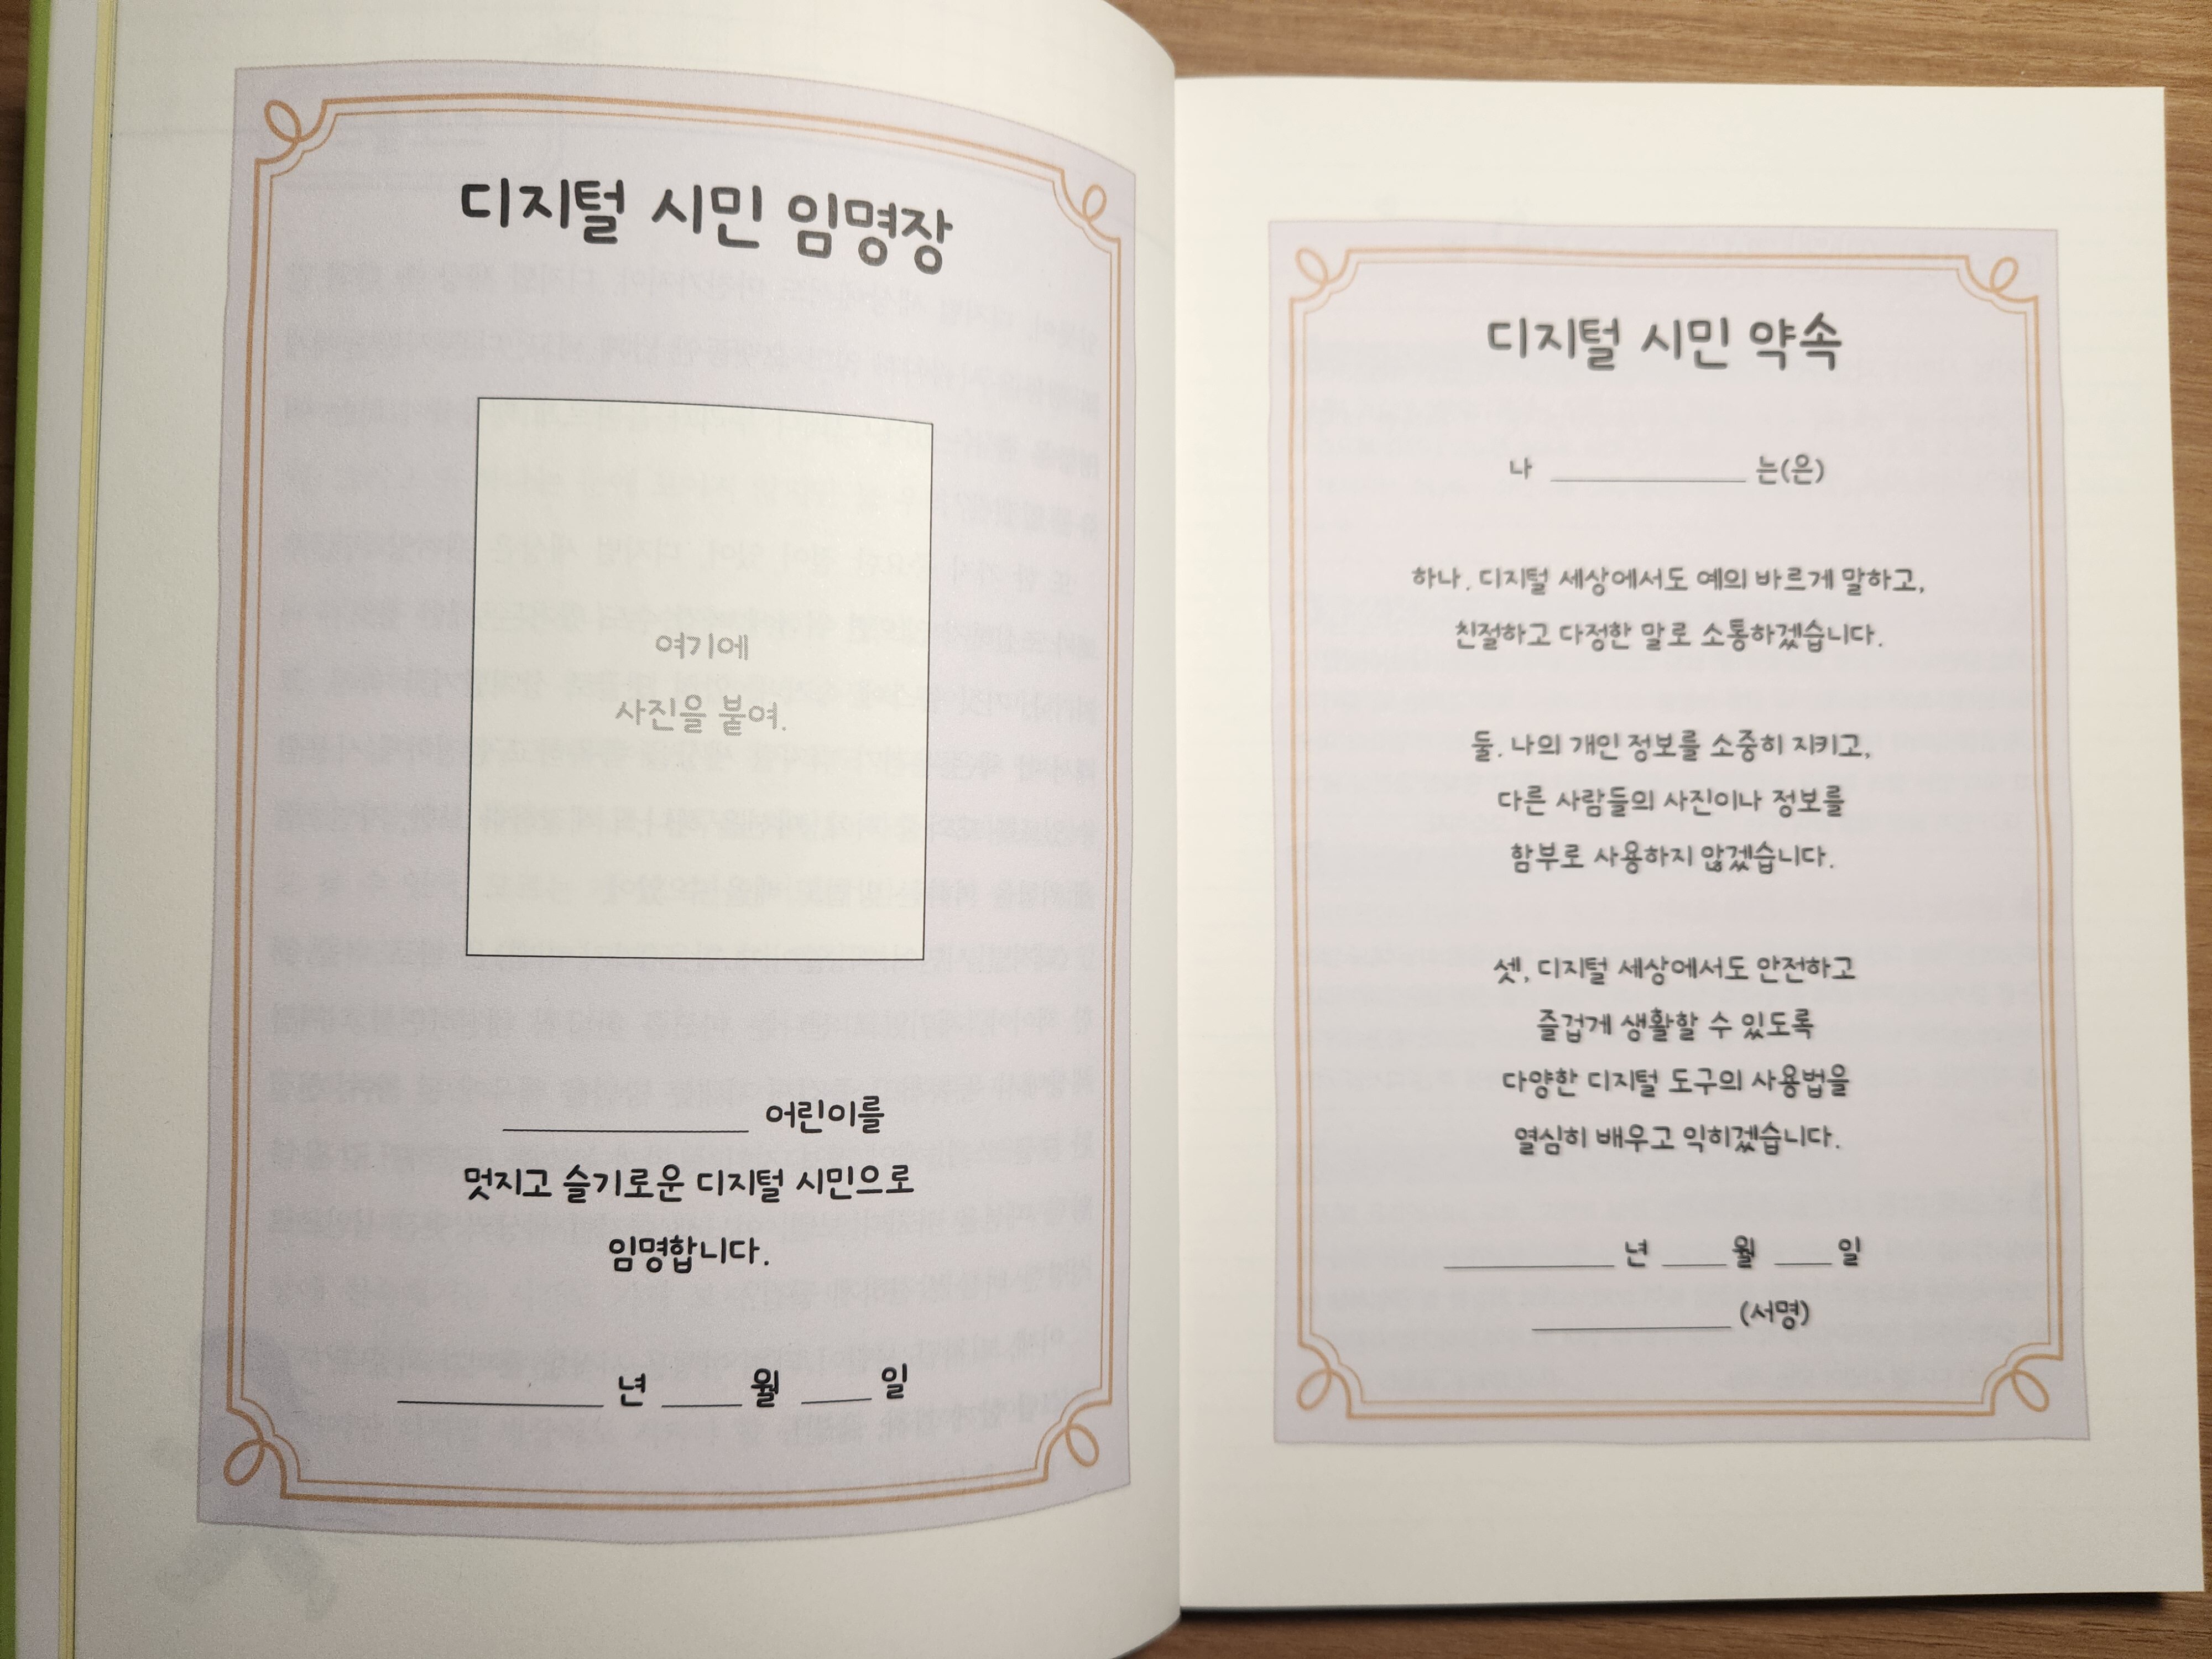 디지털 시민 임명장
여기에
사진을 붙여.
어린이를
멋지고 슬기로운 디지털 시민으로
임명합니다.
년 월 일
디지털 시민 약속
나 는(은)
하나. 디지털 세상에서도 예의 바르게 말하고,
친절하고 다정한 말로 소통하겠습니다.
둘. 나의 개인 정보를 소중히 지키고,
다른 사람들의 사진이나 정보를
함부로 사용하지 않겠습니다.
셋, 디지털 세상에서도 안전하고
즐겁게 생활할 수 있도록
다양한 디지털 도구의 사용법을
열심히 배우고 익히겠습니다.
년 월 일
(서명)